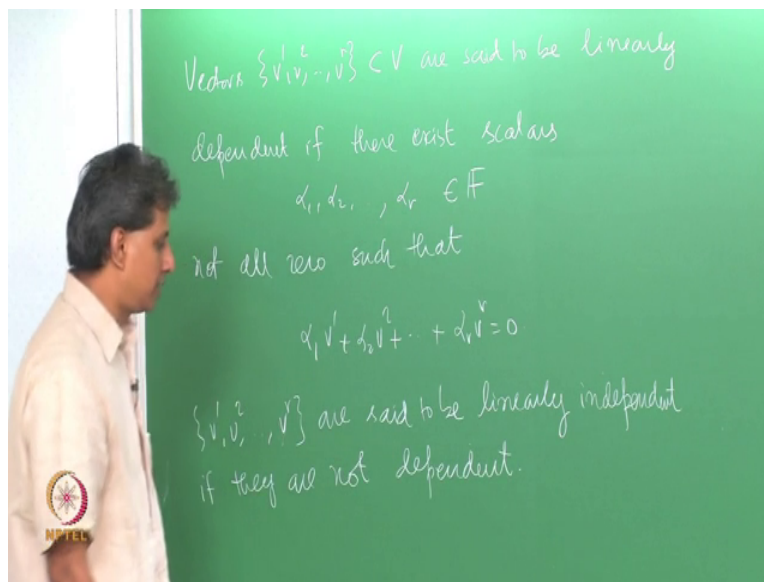 Vectors {v¹, v², .., vʳ} ⊂ V are said to be linearly
dependent if there exist scalars
α₁, α₂, , αᵣ ∈ F
not all zero such that
α₁v¹ + α₂v² + ... + αᵣvʳ = 0
{v¹, v², ..., vʳ} are said to be linearly independent
if they are not dependent.
NPTEL